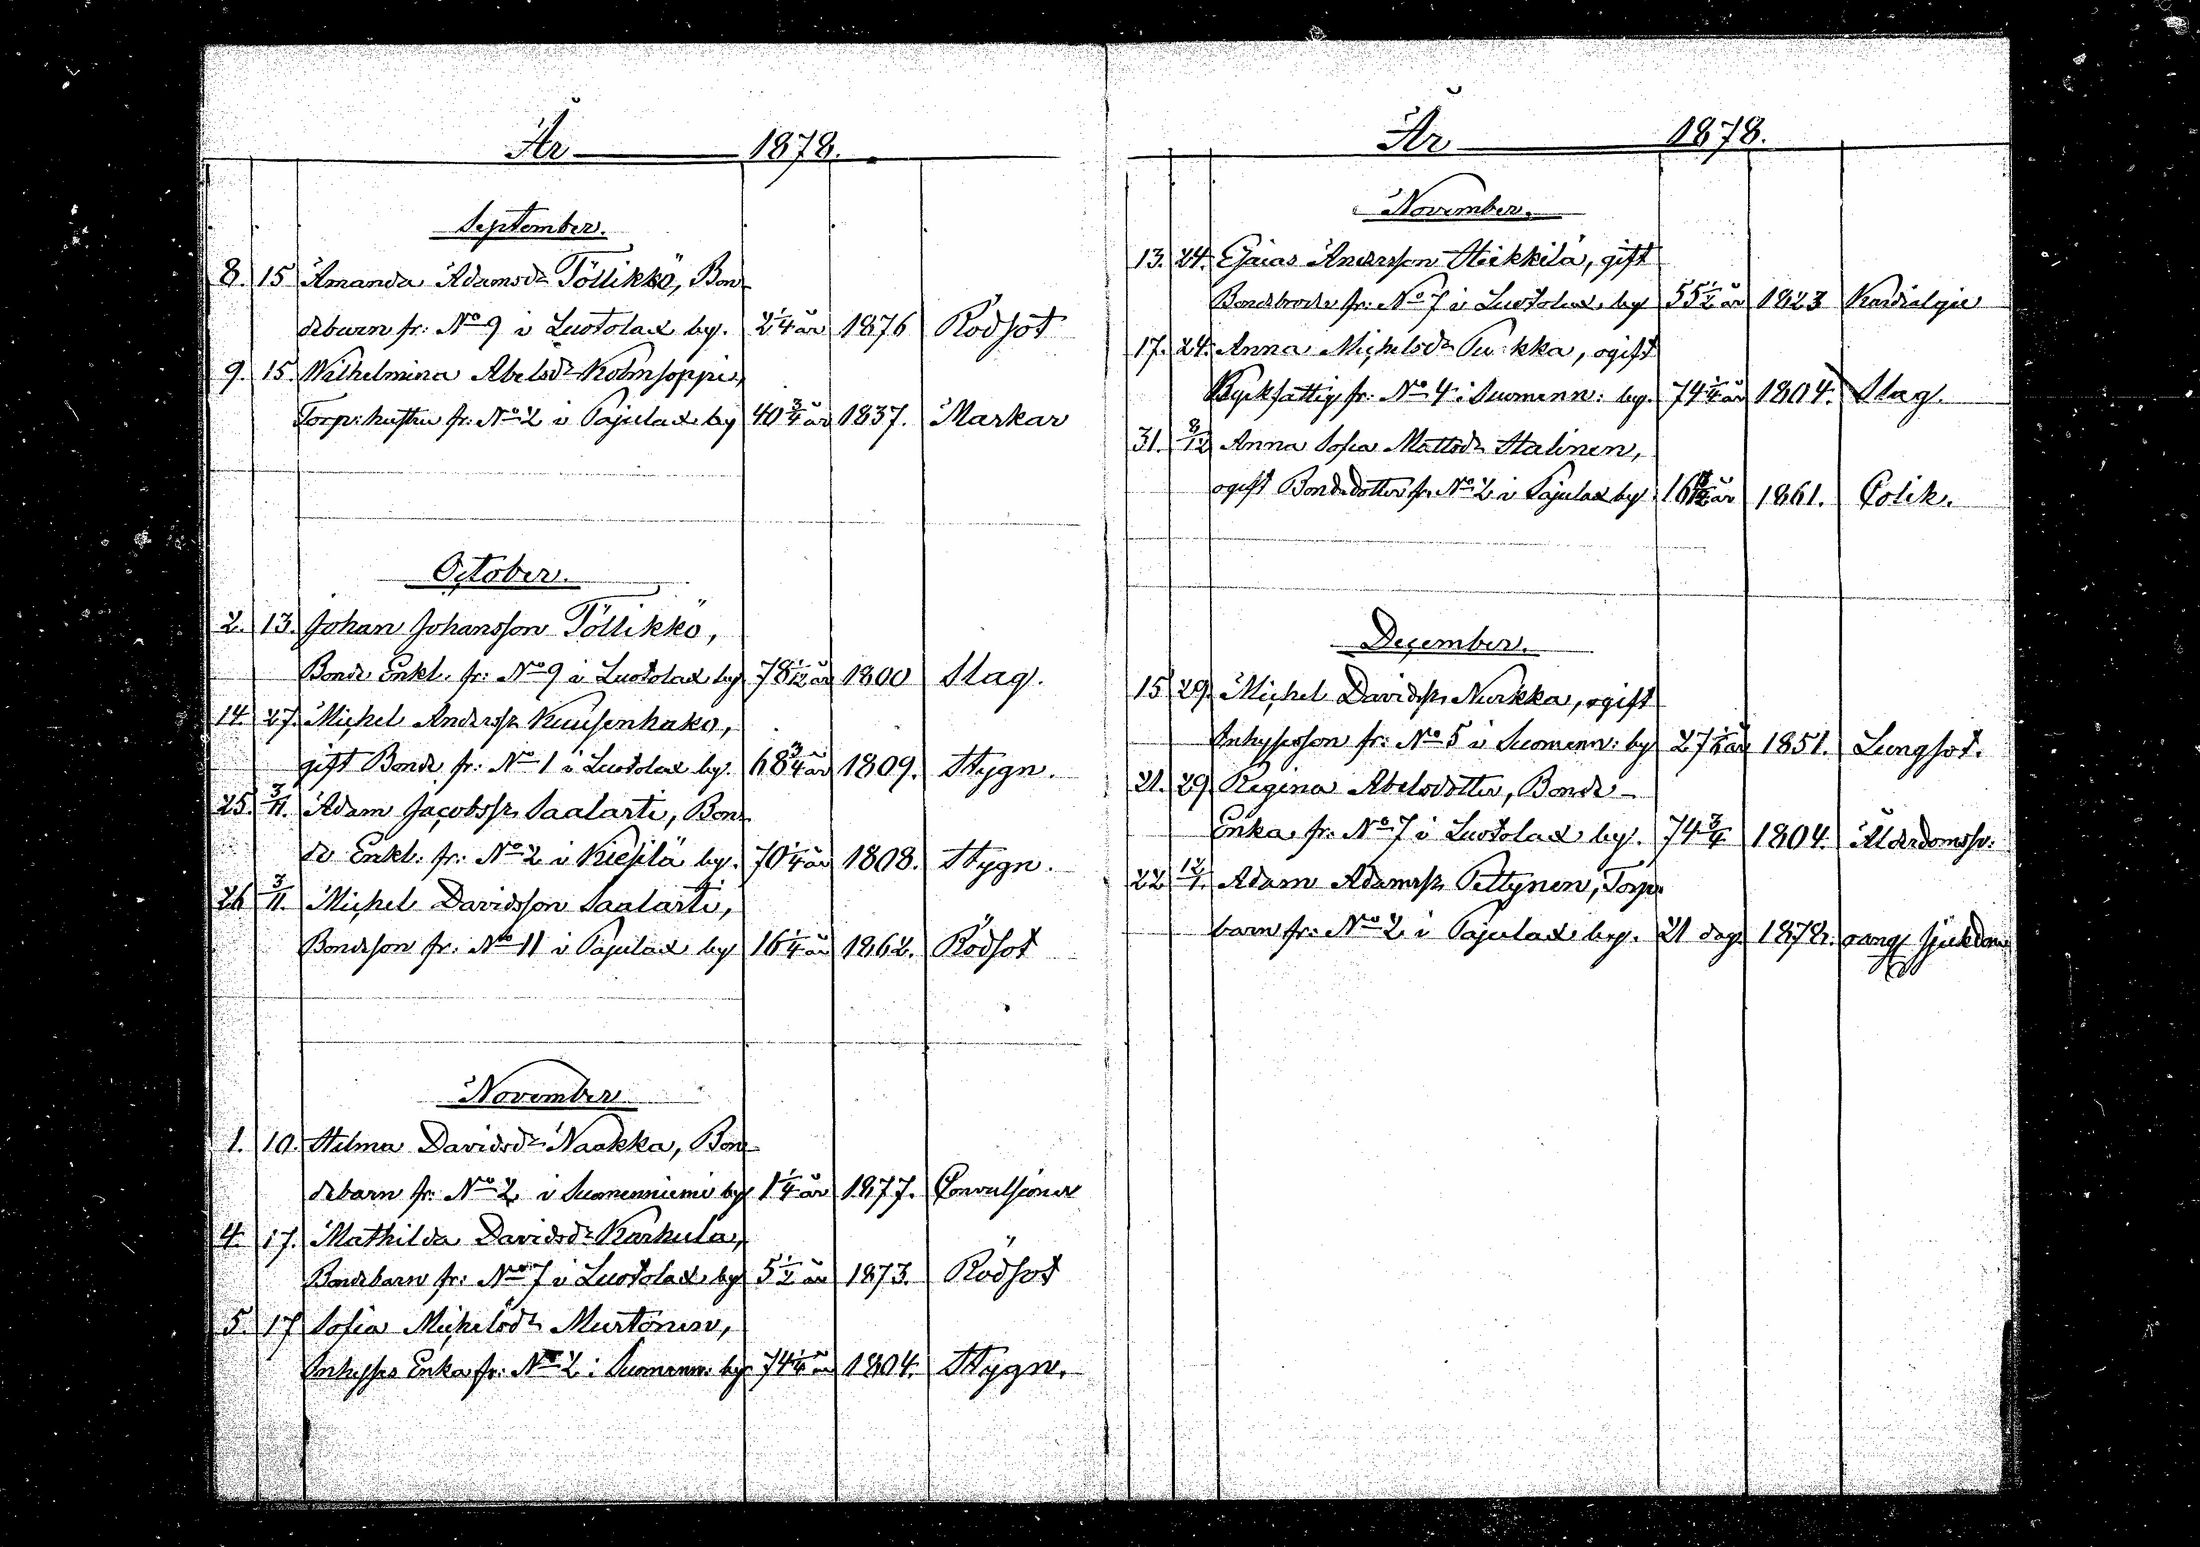 År 1878.
September.
8. 15 Amanda Adamsdr Töllikkö, Bon-
debarn fr: No 9 i Luotolax by. 2 1/4 år 1876 Rödsot
9. 15. Wilhelmina Abelsdr Kolmsoppi,
Torp: hustru fr: No 2 i Pajulax by 40 3/4 år 1837. Markar
October.
2. 13. Johan Johansson Töllikkö,
Bonde Enkl. fr: No 9 i Luotolax by 78 1/2 år 1800 Slag.
14. 27. Michel Anderss: Kuusenhako,
gift Bonde fr: No 1 i Luotolax by. 68 3/4 år 1809. Stygn.
25. 3/11. Adam Jacobss: Saalasti, Bon-
de Enkl: fr: No 2 i Kiesilä by. 70 1/4 år 1808. Stygn.
26 3/11. Michel Davidsson Saalasti,
Bondeson fr: No 11 i Pajulax by 16 1/4 år 1862. Rödsot
November
1. 10. Hilma Davidsdr Naakka, Bon-
debarn fr: No 2 i Suomenniemi by 1 1/4 år 1877. Convulsioner
4. 17. Mathilda Davidsdr Karhula,
Bondebarn fr: No 7 i Luotolax by 5 1/2 år 1873. Rödsot
5. 17 Sofia Michelsdr Murtonen,
Inhyses Enka fr: No 2 i Suomenn: by 74 1/4 år 1804. Stygn.
År 1878.
November.
13. 24. Esaias Andersson Heikkilä, gift
Bondebroder fr: No 7 i Luotolax by 55 1/2 år 1823 Kardialgie
17. 24. Anna Michelsdr kka, ogift
fattig fr: No 4 i Suomenn: by. 74 1/4 år 1804. Slag.
31. 8/12 Anna Sofia Mattsdr Halinen,
ogift Bondedotter fr: No 2 i Pajulax by 16 år 1861. Colik.
December.
15 29. Michel Davidss: Nurkka, ogift
Inhysesson fr: No 5 i Suomenn: by 27 1/4 år 1851. Lungsot.
21. 29 Regina Abelsdotter, Bonde-
Enka fr: No 7 i Luotolax by. 74 3/4 1804. Ålderdomssv:
22 12/1. Adam Adamss: Pettynen, Torp:
barn fr: No 2 i Pajulax by. 21 dag 1878. oangf sjukdom